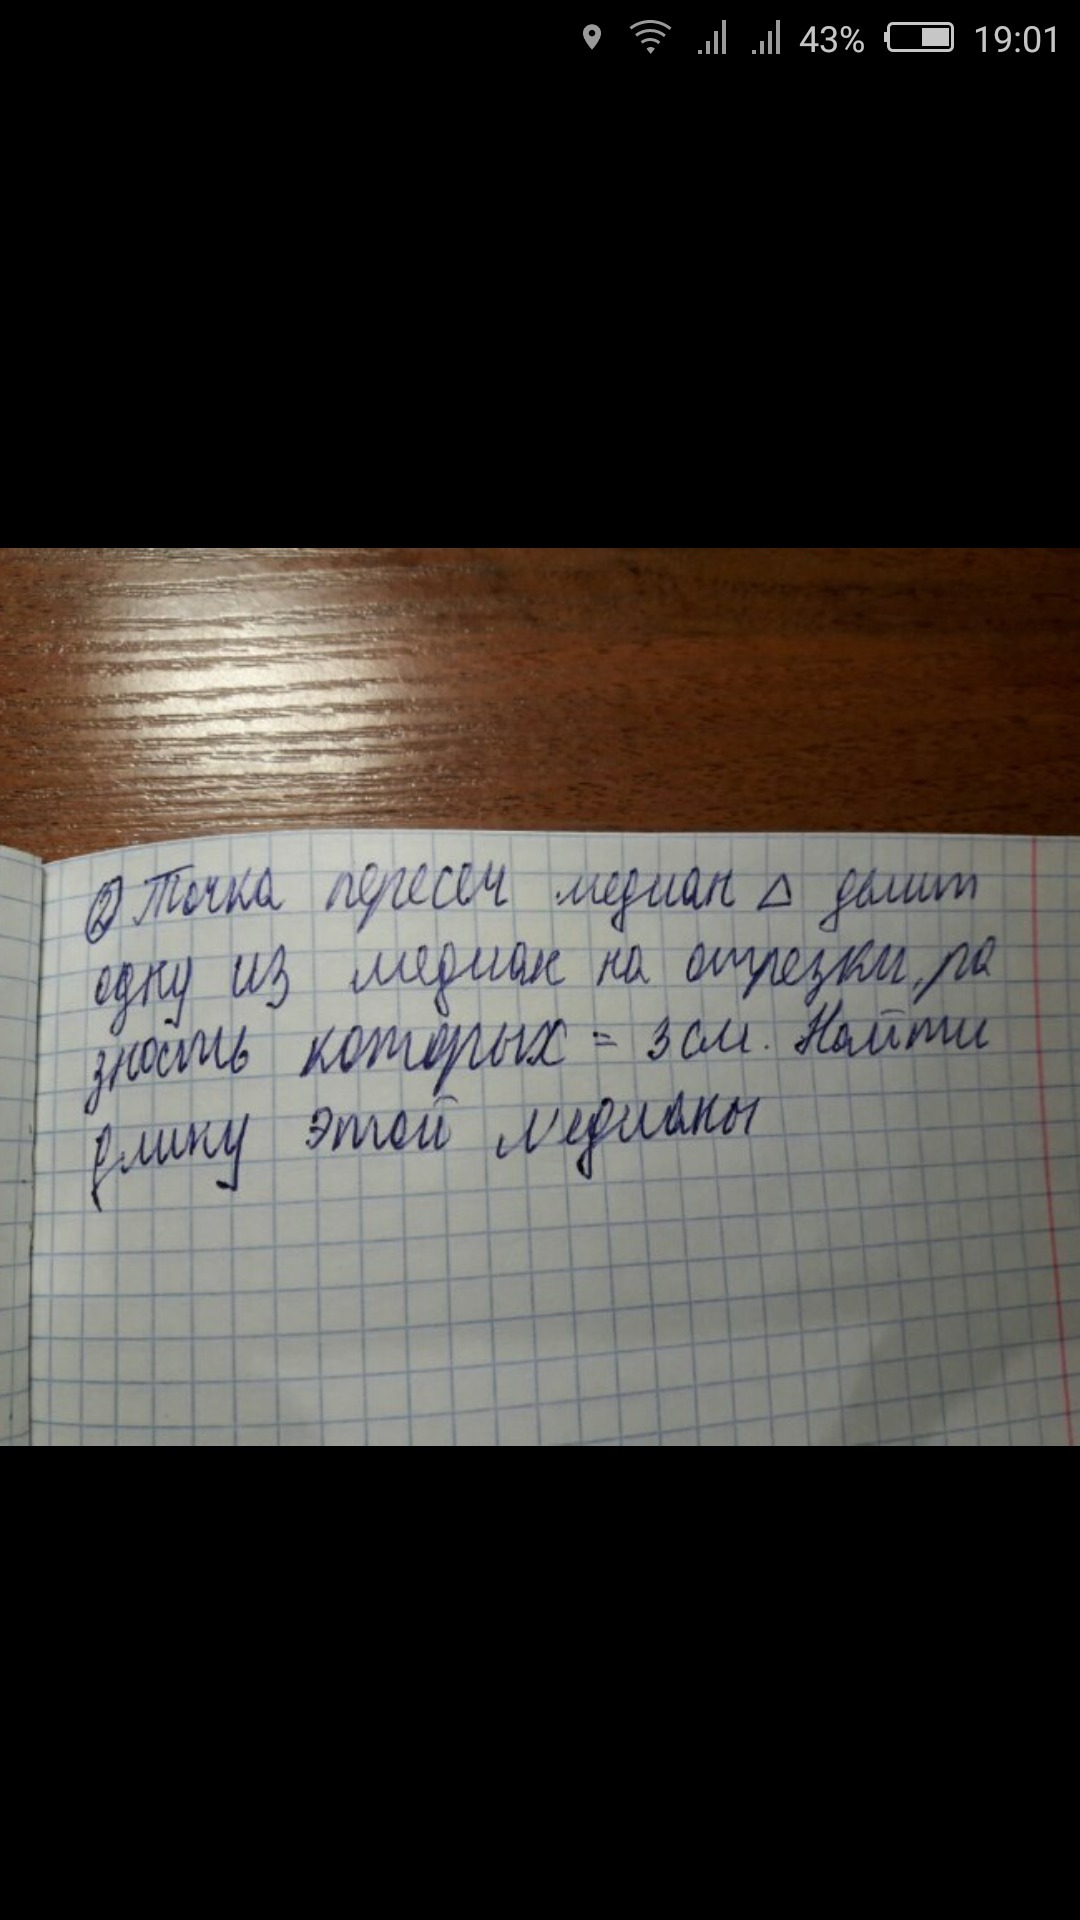 43% 19:01
② Точка пересеч медиан △ делит
одну из медиан на отрезки, ра
зность которых = 3 см. Найти
длину этой медианы